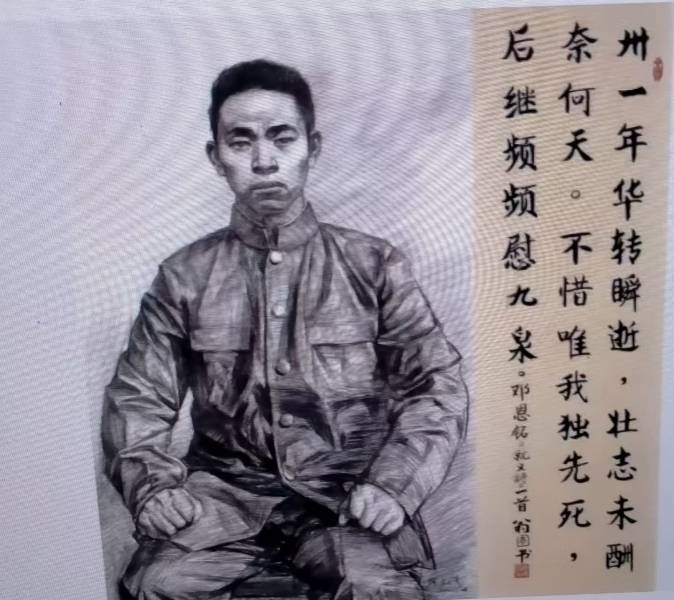 卅一年华转瞬逝，壮志未酬
奈何天。不惜唯我独先死，
后继频频慰九泉。邓恩铭就义诗一首 书